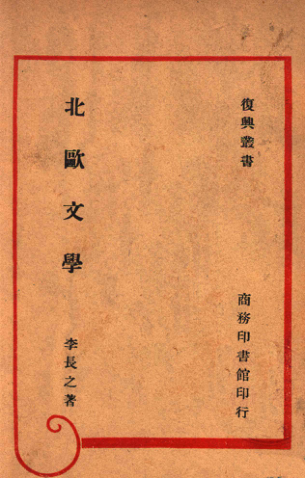 復興叢書
商務印書館印行
北歐文學
李長之著